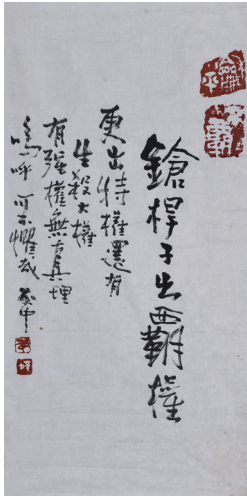 鎗桿子出霸權
更出特權還有
生殺大權
有强權無真理
嗚呼可不懼哉